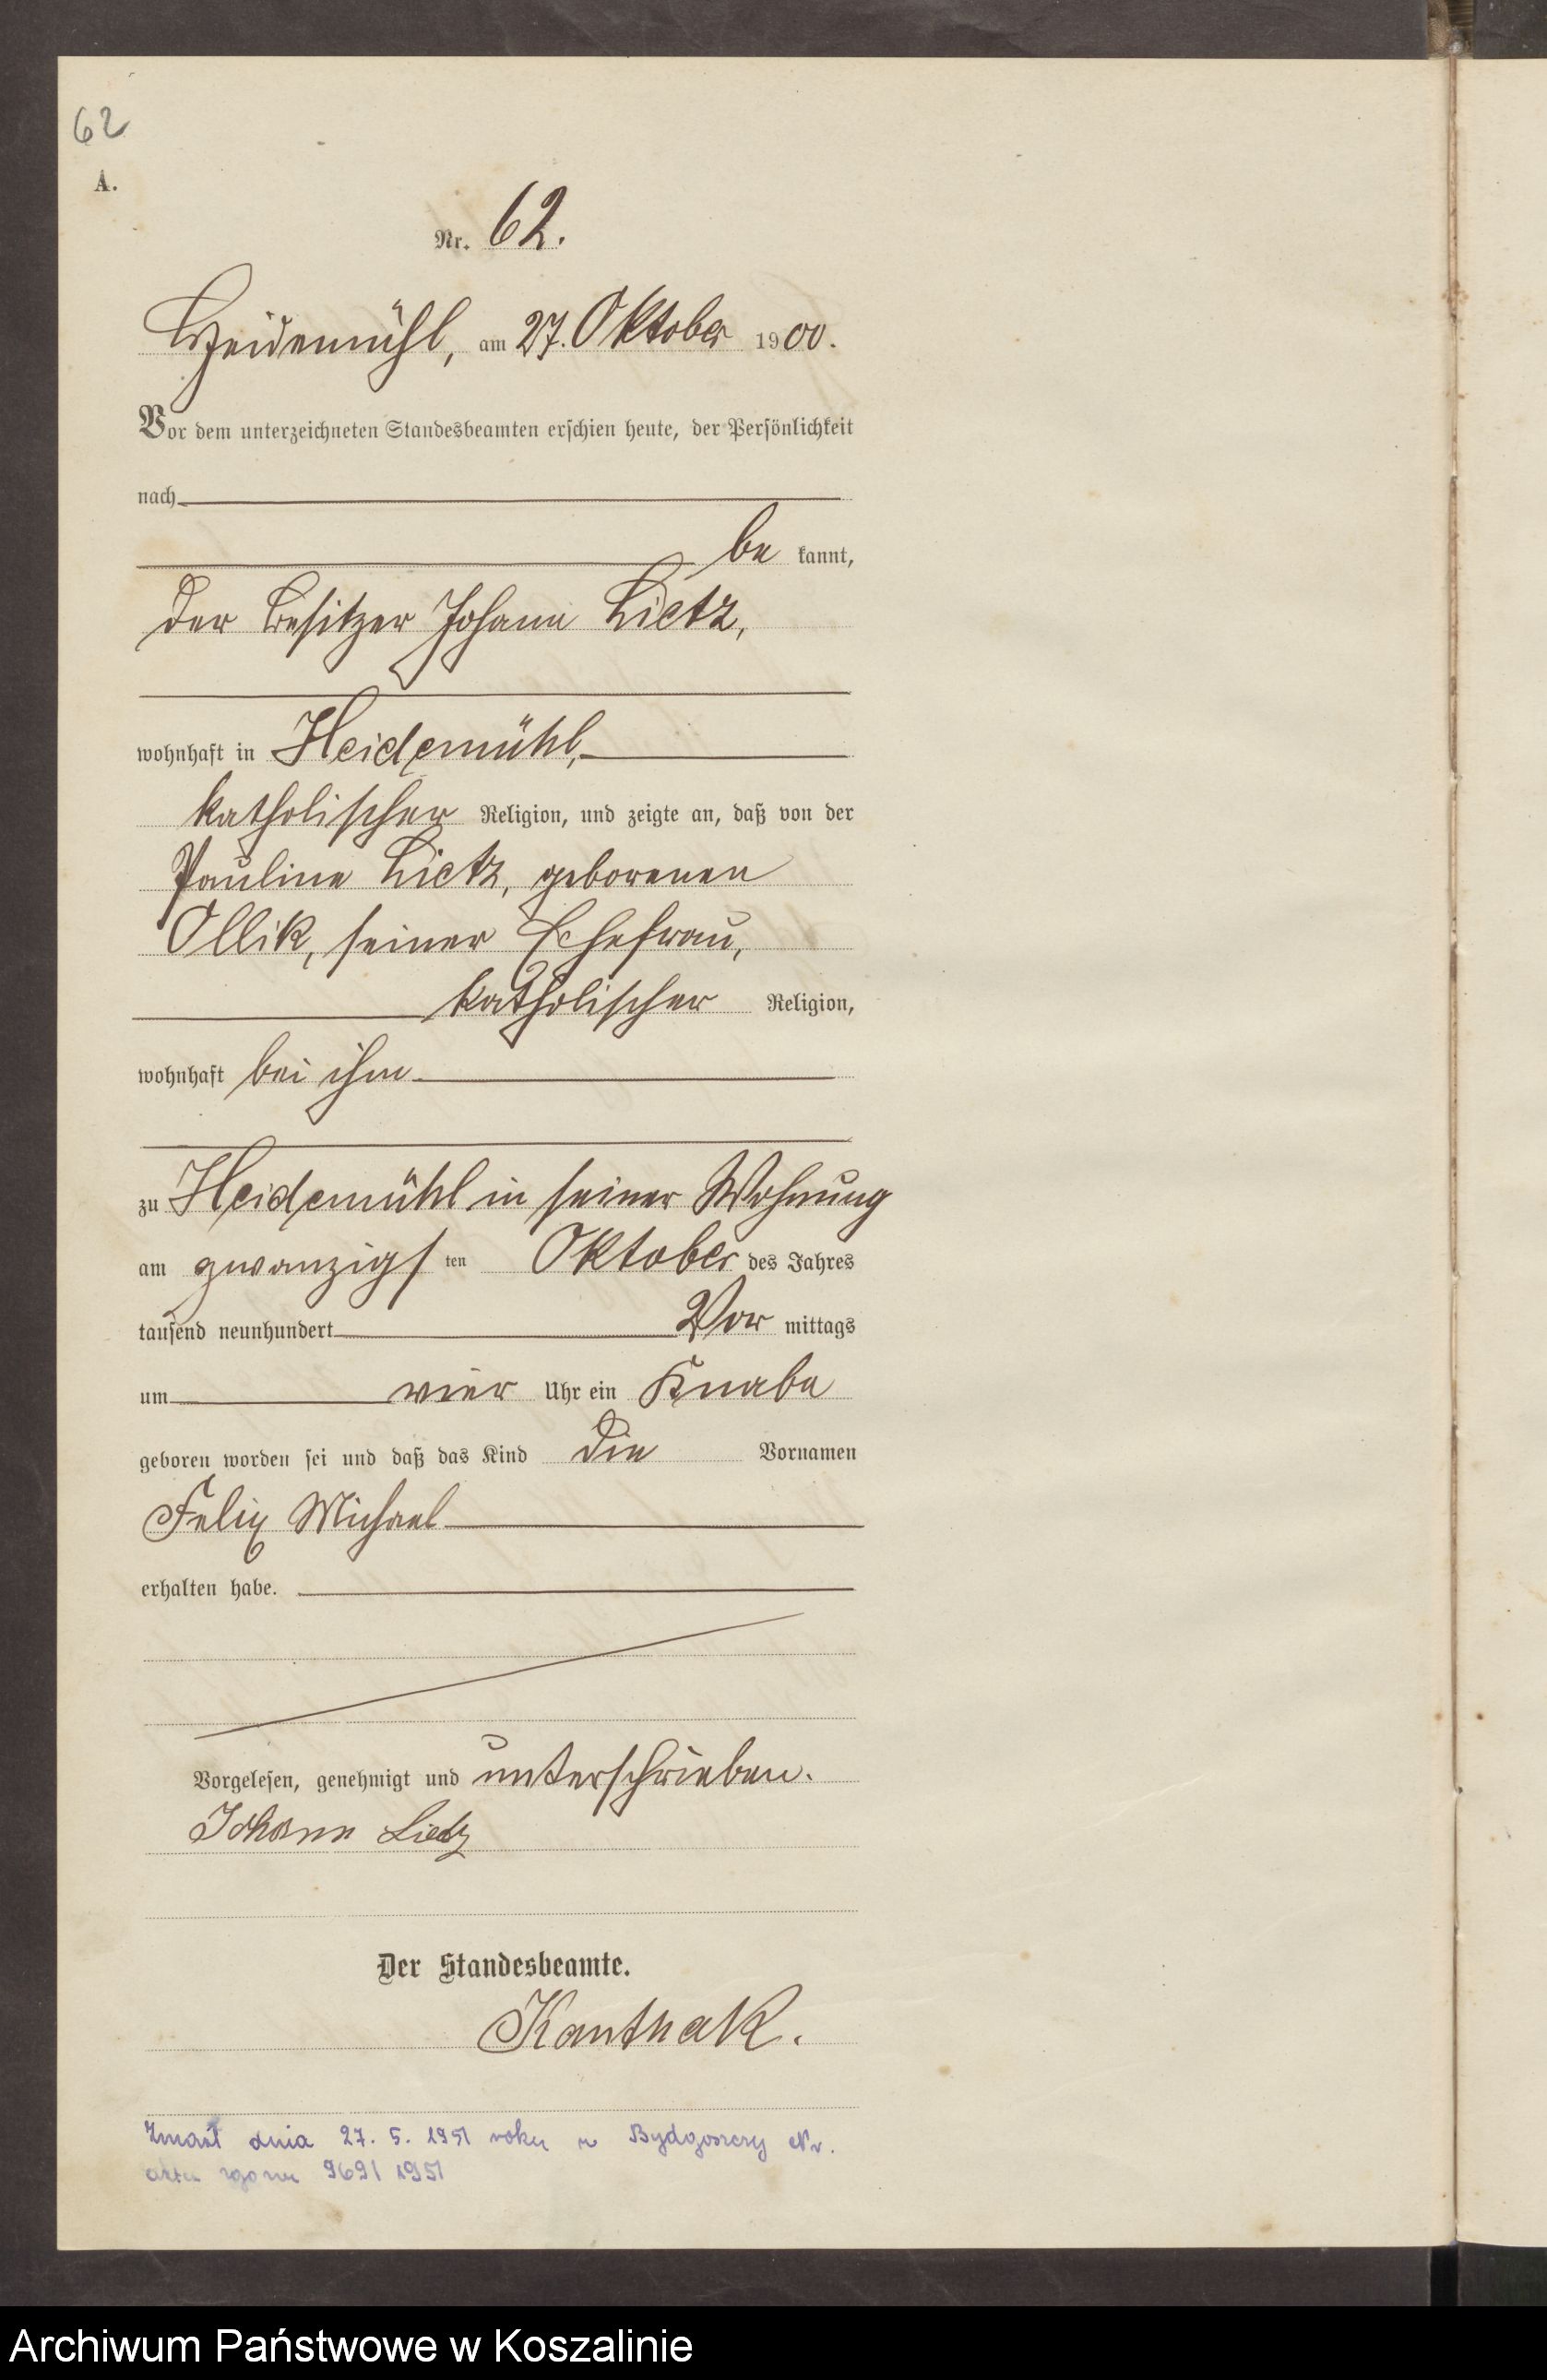 62
A.
Nr. 62.
Heidemühl, am 27. Oktober 1900.
Vor dem unterzeichneten Standesbeamten erschien heute, der Persönlichkeit
nach
be kannt,
der Besitzer Johann Lietz,
wohnhaft in Heidemühl,
katholischer Religion, und zeigte an, daß von der
Pauline Lietz, geborenen
Ollik, seiner Ehefrau,
katholischer Religion,
wohnhaft bei ihm
zu Heidemühl in seiner Wohnung
am zwanzigsten Oktober des Jahres
tausend neunhundert Vor mittags
um vier Uhr ein Knabe
geboren worden sei und daß das Kind die Vornamen
Felix Michael
erhalten habe.
Vorgelesen, genehmigt und unterschrieben.
Johann Lietz
Der Standesbeamte.
Kanthak.
Zmarł dnia 27. 5. 1951 roku w Bydgoszczy Nr.
aktu zgonu 969/1951
Archiwum Państwowe w Koszalinie